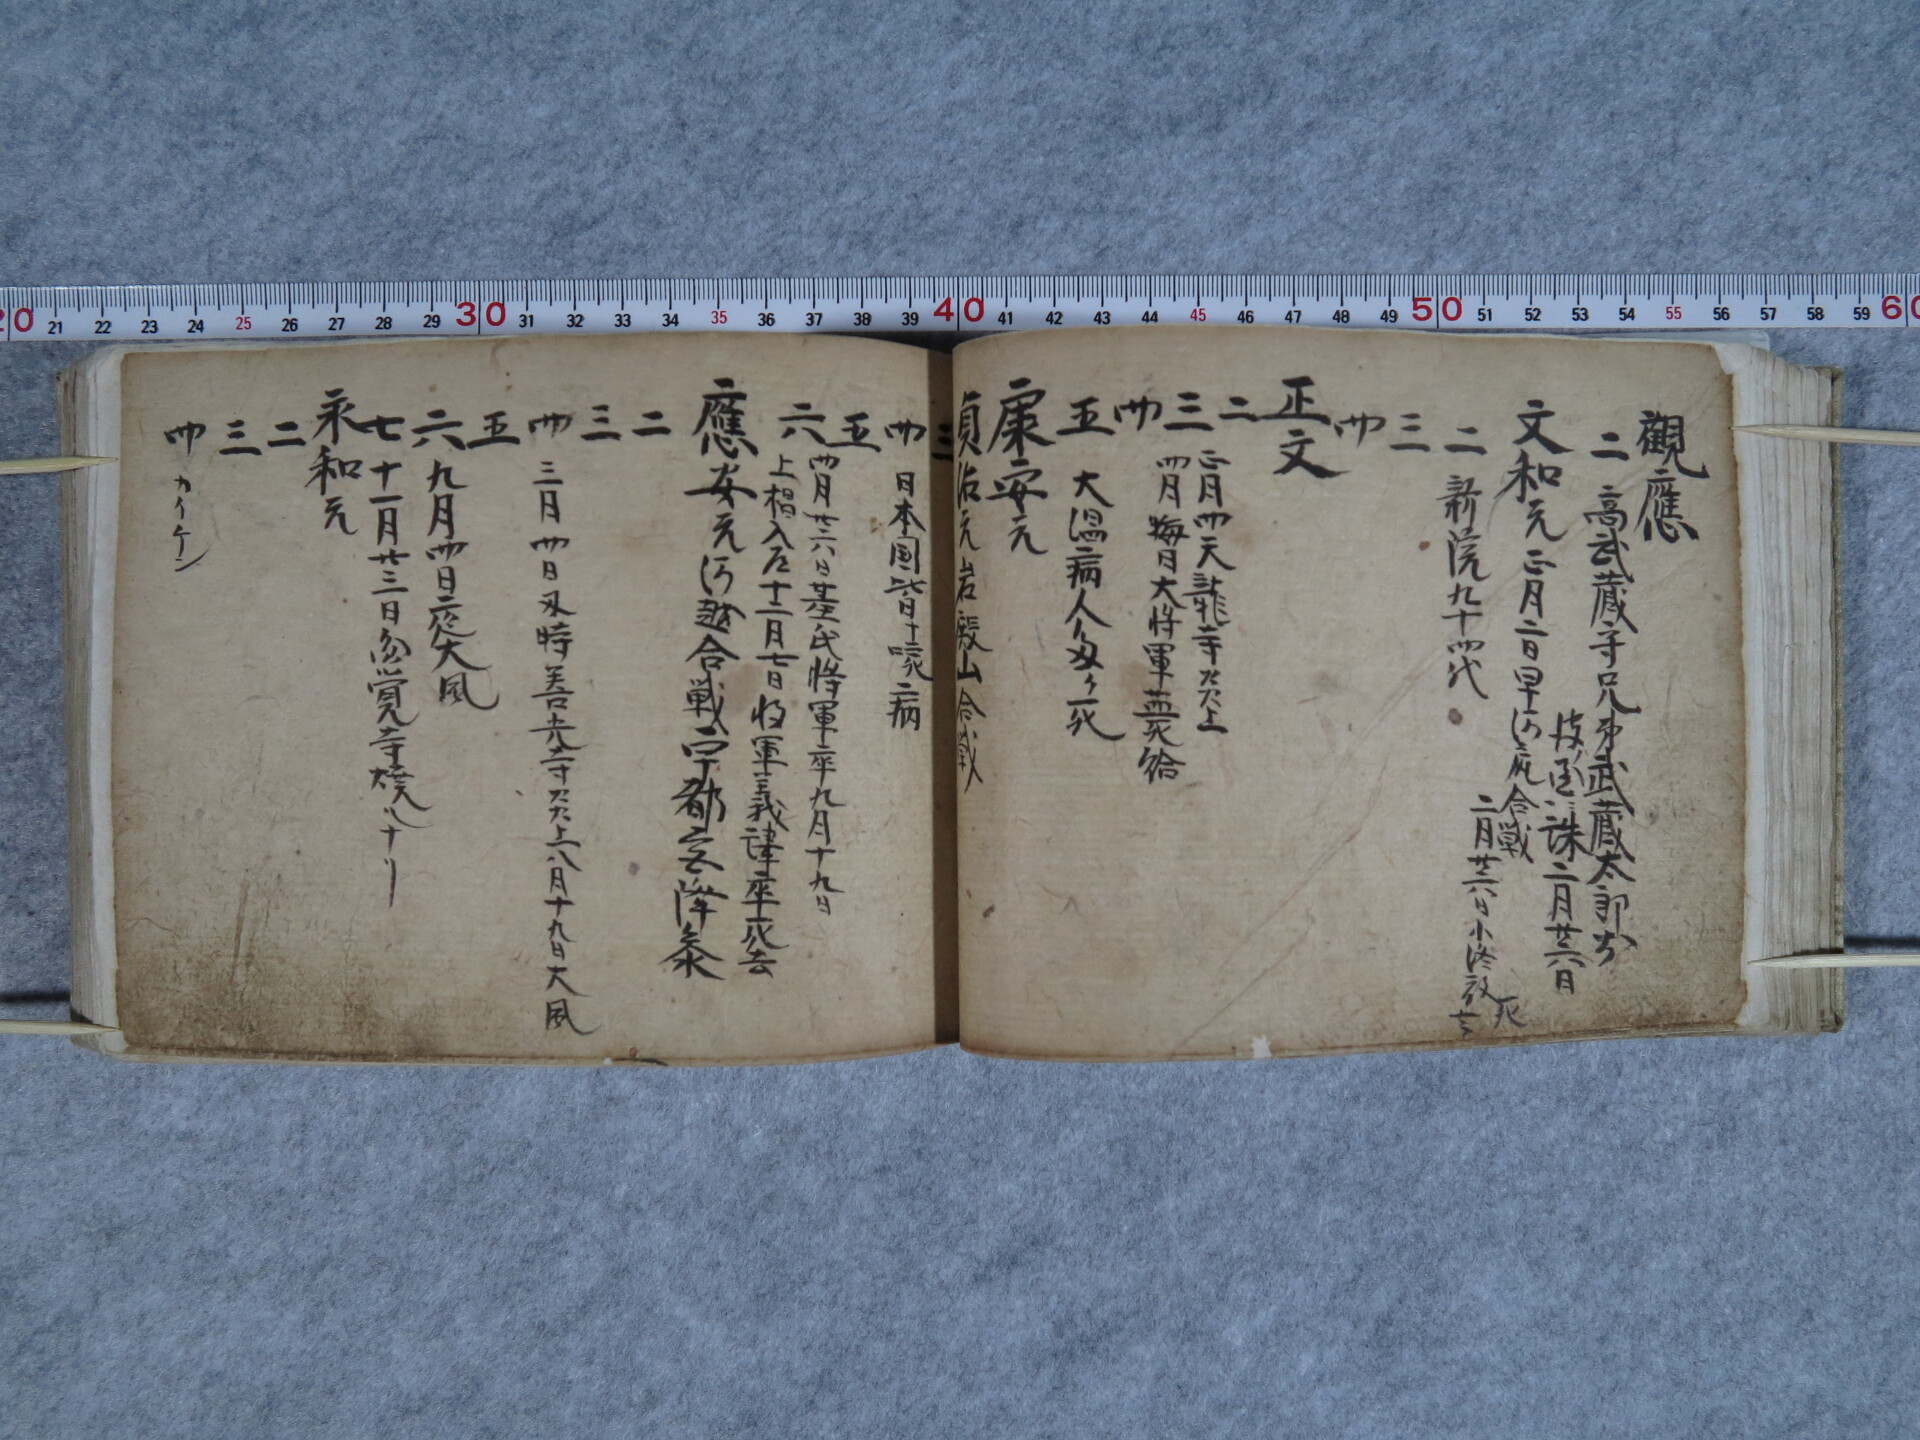 20 21 22 23 24 25 26 27 28 29 30 31 32 33 34 35 36 37 38 39 40 41 42 43 44 45 46 47 48 49 50 51 52 53 54 55 56 57 58 59 60
觀應
二 高武蔵守兄弟武蔵太郎
誅二月廿六日
文和元 正月二日早河尻合戦
二月廿八日小
死
二 新院九十四代
三
四
正文
二
三 正月四天龍寺炎上
四 四月晦日大将軍薨死給
五 大温病人多々死
康安元
貞治元 岩殿山合戦
三
四 日本国皆十 病
五
六 四月廿六日基氏将軍卒九月十九日
上相入 十二月七日将軍義詮卒死去
應安元 河越合戦宇都宮降参
二
三
四 三月四日 時善光寺炎上八月十九日大風
五
六 九月四日夜大風
七 十一月廿三日円覚寺焼
永和元
二
三
四 カイケン